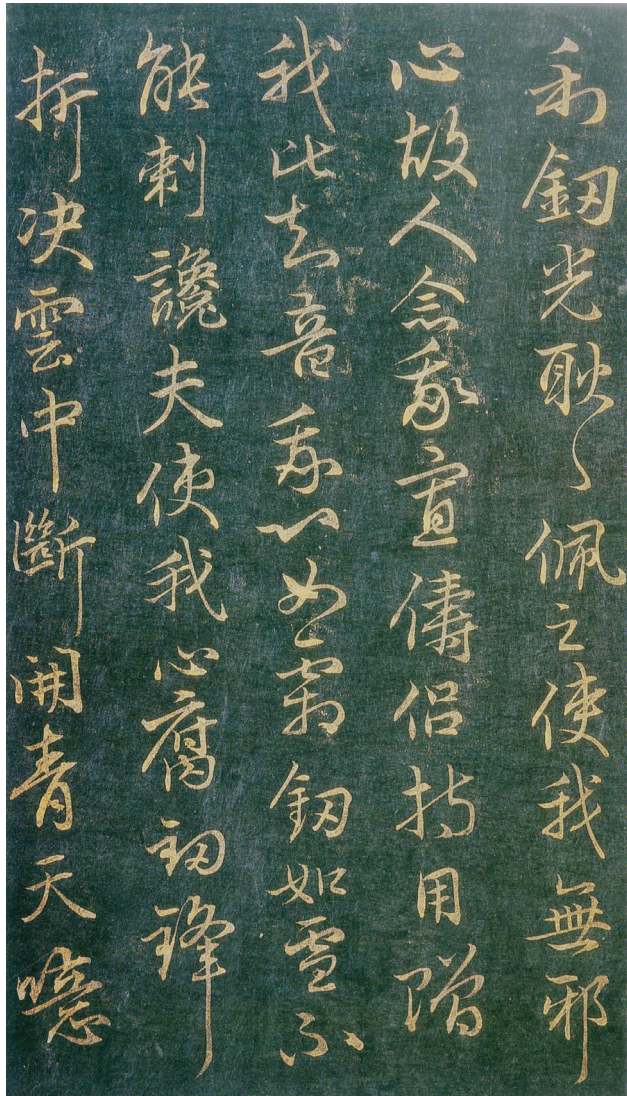 利釼光耿〻佩之使我無邪
心故人念我寡儔侣持用贈
我比知音我心如霜釼如雪不
能刺讒夫使我心腐釼鋒
折决雲中斷開青天噫